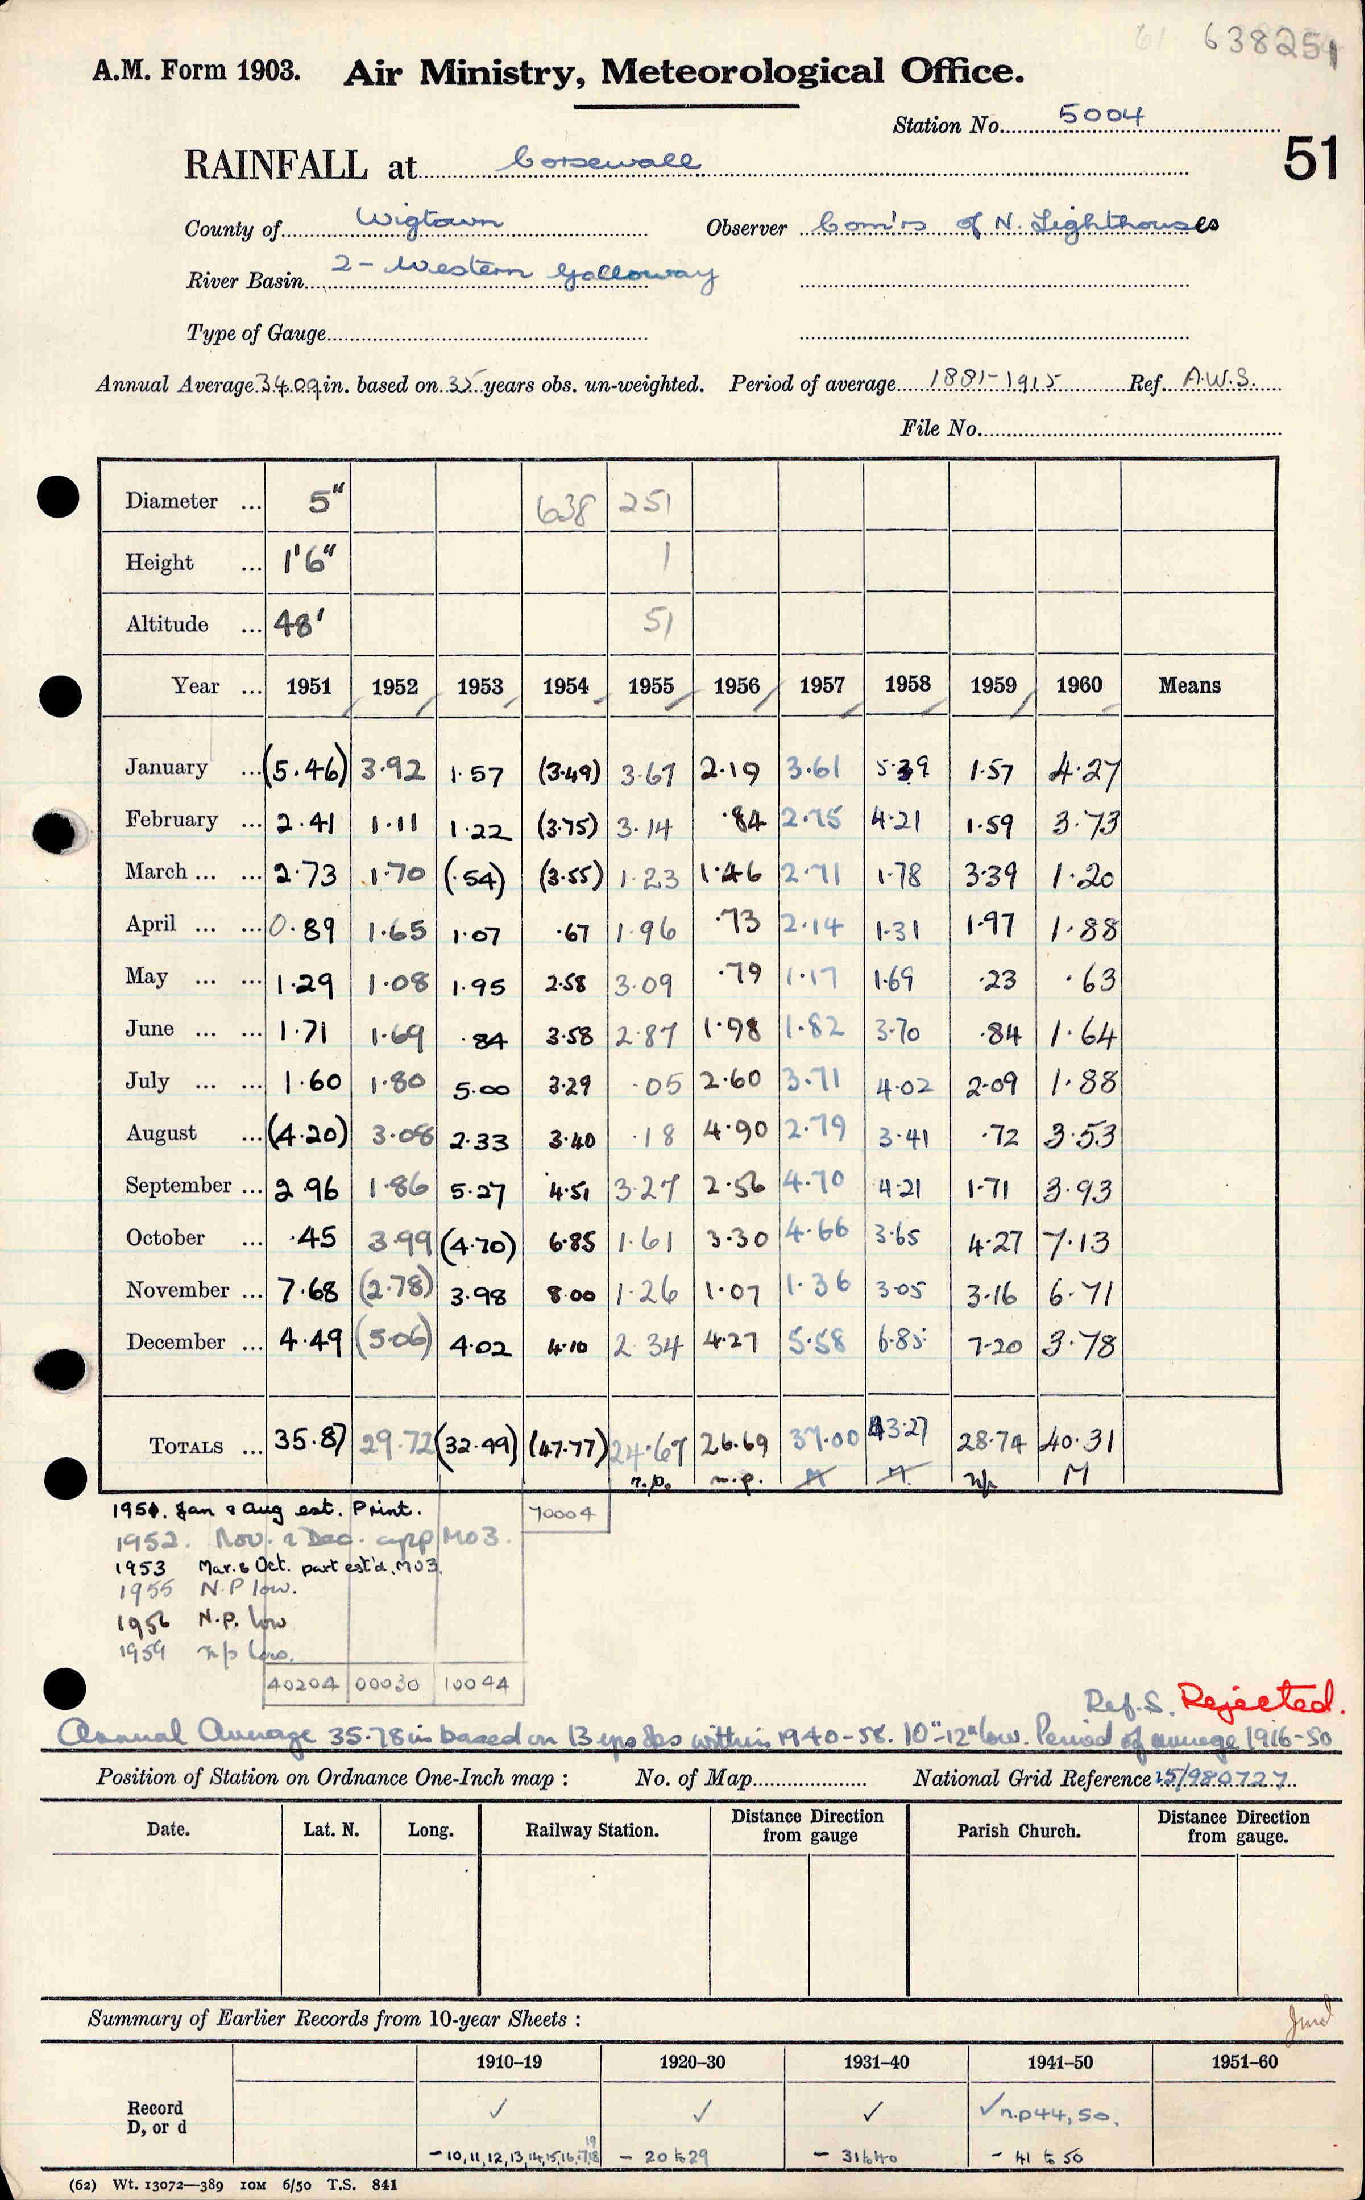 61 638251
A.M. Form 1903. Air Ministry, Meteorological Office.
Station No. 5004
51
RAINFALL at Corsewall
County of Wigtown Observer Com'rs of N. Lighthouses
River Basin 2 - Western Galloway
Type of Gauge
Annual Average 34.09 in. based on 35 years obs. un-weighted. Period of average 1881-1915 Ref. A.W.S.
File No.
Diameter ... 5" 638 251
Height ... 1'6" 1
Altitude ... 48' 51
Year ... 1951 1952 1953 1954 1955 1956 1957 1958 1959 1960 Means
January ... (5.46) 3.92 1.57 (3.49) 3.67 2.19 3.61 5.39 1.57 4.27
February ... 2.41 1.11 1.22 (3.75) 3.14 .84 2.75 4.21 1.59 3.73
March ... ... 2.73 1.70 (.54) (3.55) 1.23 1.46 2.71 1.78 3.39 1.20
April ... ... 0.89 1.65 1.07 .67 1.96 .73 2.14 1.31 1.97 1.88
May ... ... 1.29 1.08 1.95 2.58 3.09 .79 1.17 1.69 .23 .63
June ... ... 1.71 1.69 .84 3.58 2.87 1.98 1.82 3.70 .84 1.64
July ... ... 1.60 1.80 5.00 3.29 .05 2.60 3.71 4.02 2.09 1.88
August ... (4.20) 3.08 2.33 3.40 .18 4.90 2.79 3.41 .72 3.53
September ... 2.96 1.86 5.27 4.51 3.27 2.56 4.70 4.21 1.71 3.93
October ... .45 3.99 (4.70) 6.85 1.61 3.30 4.66 3.65 4.27 7.13
November ... 7.68 (2.78) 3.98 8.00 1.26 1.07 1.36 3.05 3.16 6.71
December ... 4.49 (5.06) 4.02 4.10 2.34 4.27 5.58 6.85 7.20 3.78
TOTALS ... 35.87 29.72 (32.49) (47.77) 24.67 26.69 37.00 43.27 28.74 40.31
n.p. n.p. M M np M
1951. Jan & Aug est. Print. 70004
1952. Nov. & Dec. app MO3.
1953 Mar. & Oct. part est'd. MO3.
1955 N.P low.
1956 N.p. low
1959 n/p low.
40204 00030 10044
Ref. S. Rejected.
Annual Average 35.78 in based on 13 yrs obs within 1940-58. 10"-12" low. Period of average 1916-50
Position of Station on Ordnance One-Inch map : No. of Map National Grid Reference 25/980727
Date. Lat. N. Long. Railway Station. Distance Direction from gauge Parish Church. Distance Direction from gauge.
Summary of Earlier Records from 10-year Sheets :
1910–19 1920–30 1931–40 1941–50 1951–60
Record D, or d ✓ ✓ ✓ ✓ n.p 44, 50.
- 10, 11, 12, 13, 14, 15, 16, 17, 18 19 - 20 to 29 - 31 to 40 - 41 to 50
(62) Wt. 13072—389 10M 6/50 T.S. 841